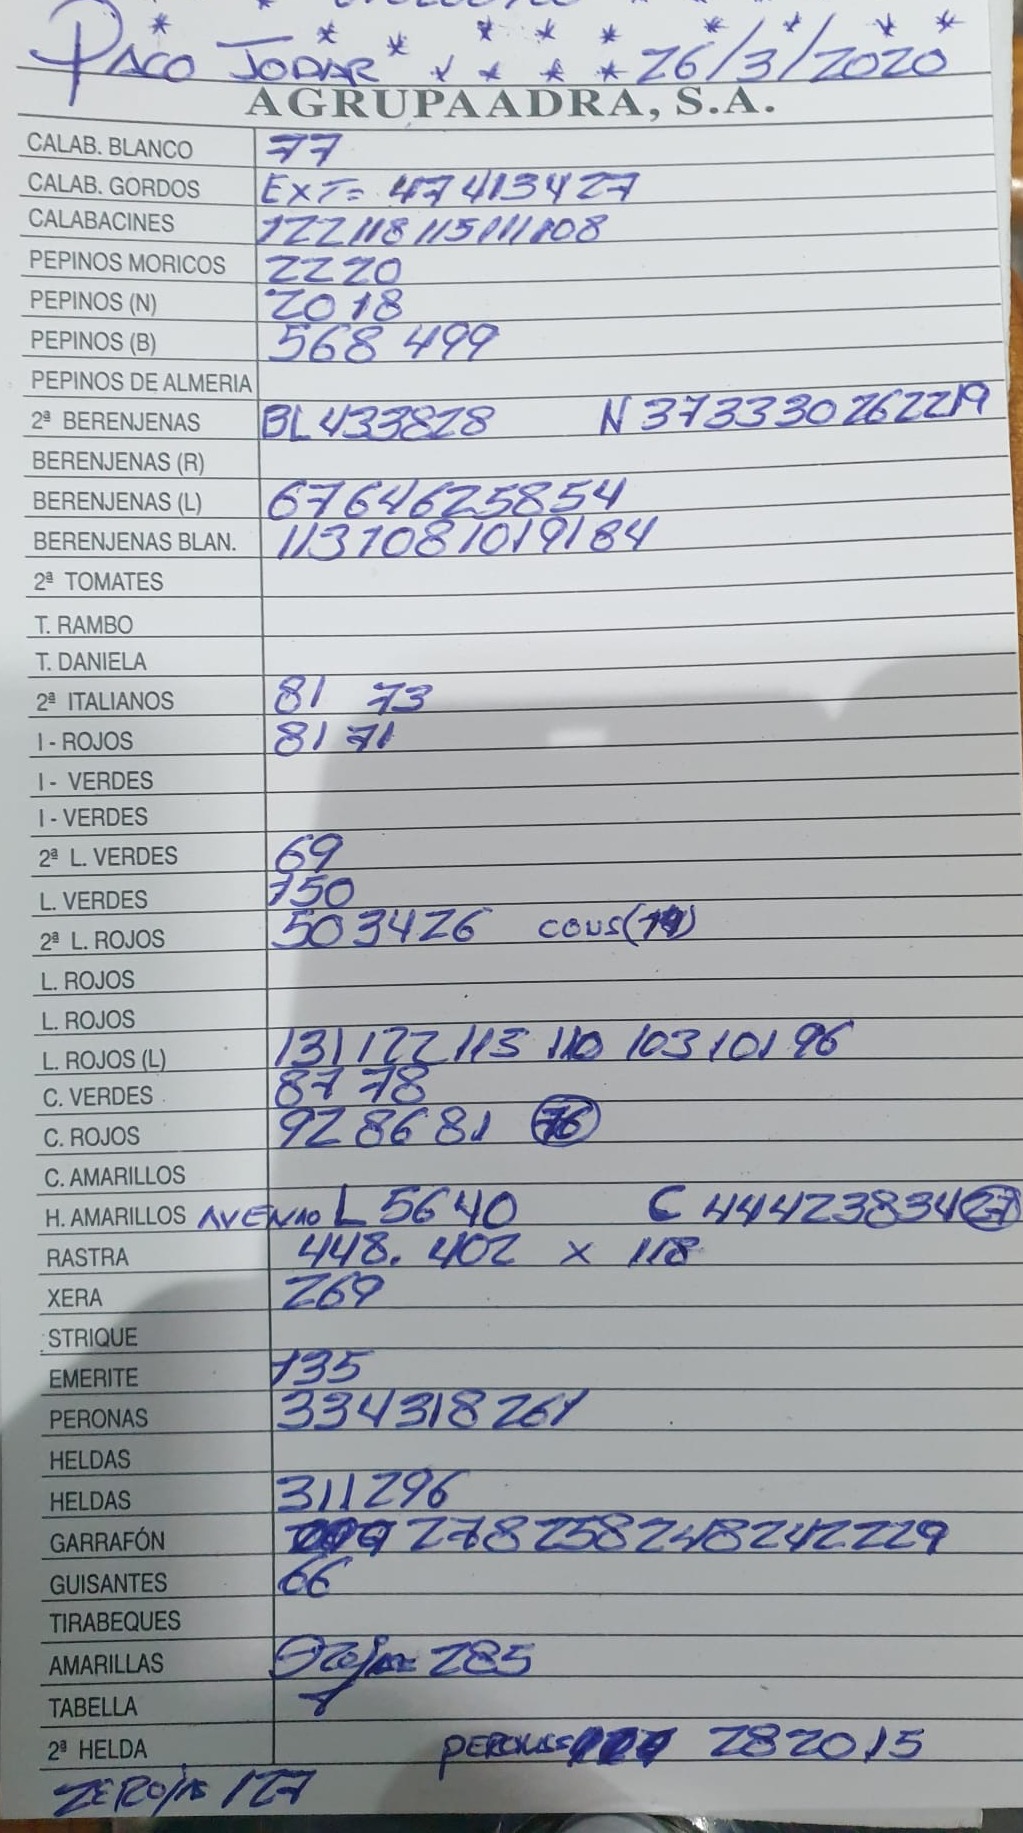 PACO JODAR 26/3/2020
AGRUPAADRA, S.A.
CALAB. BLANCO 77
CALAB. GORDOS EXT= 47 413427
CALABACINES 122118115111108
PEPINOS MORICOS 2220
PEPINOS (N) 2018
PEPINOS (B) 568 499
PEPINOS DE ALMERIA
2ª BERENJENAS BL 433828 N 373330262219
BERENJENAS (R)
BERENJENAS (L) 6764625854
BERENJENAS BLAN. 1131081019184
2ª TOMATES
T. RAMBO
T. DANIELA
2ª ITALIANOS 81 73
I - ROJOS 81 71
I - VERDES
I - VERDES
2ª L. VERDES 69
L. VERDES 150
2ª L. ROJOS 503426 COUS(19)
L. ROJOS
L. ROJOS
L. ROJOS (L) 131 122 113 110 103 101 96
C. VERDES 87 78
C. ROJOS 928681 76
C. AMARILLOS
H. AMARILLOS L 5640 C 444238342 7
RASTRA 448. 402 x 118
XERA 269
STRIQUE
EMERITE 135
PERONAS 334318 261
HELDAS
HELDAS 311296
GARRAFÓN 278258248242229
GUISANTES 66
TIRABEQUES
AMARILLAS 285
TABELLA
2ª HELDA 282015
127